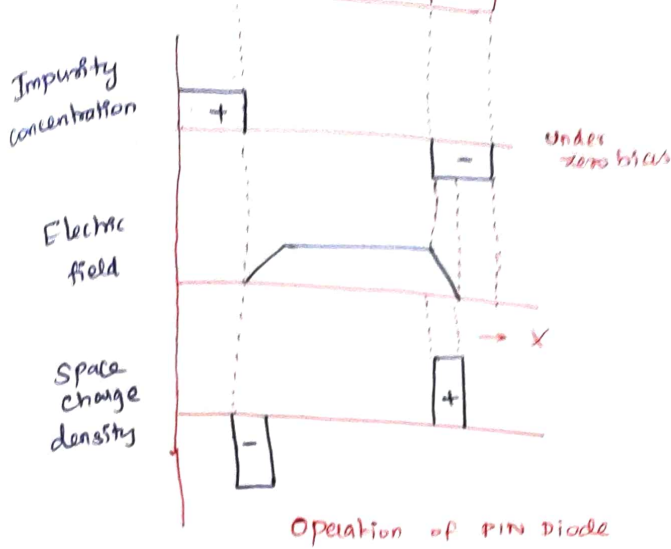 Impurity
concentration
+
-
Under
zero bias
Electric
field
→ X
Space
charge
density
+
-
Operation of PIN Diode